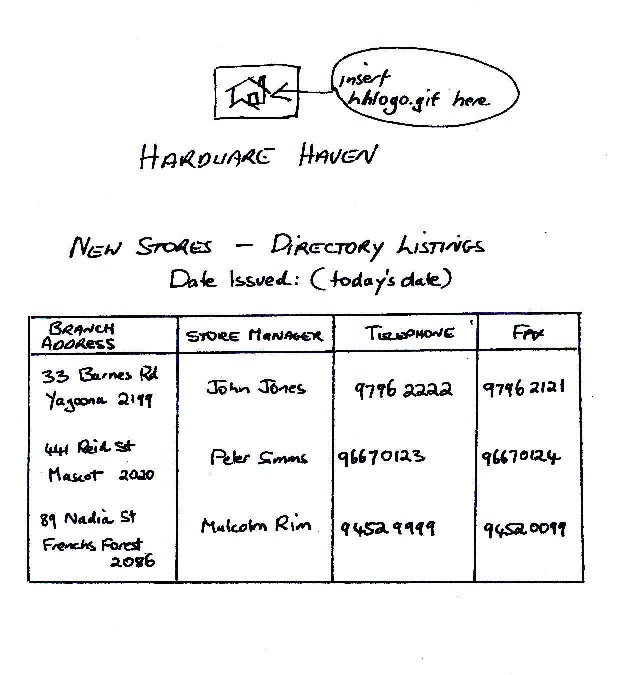 insert
hhlogo.gif here
HARDWARE HAVEN
NEW STORES - DIRECTORY LISTINGS
Date Issued: (today's date)
BRANCH ADDRESS STORE MANAGER TELEPHONE FAX
33 Barnes Rd
Yagoona 2199
John Jones 9796 2222 9796 2121
441 Reid St
Mascot 2020
Peter Simms 96670123 96670124
89 Nadia St
Frenchs Forest
2086
Malcolm Rim 9452 9999 9452 0099